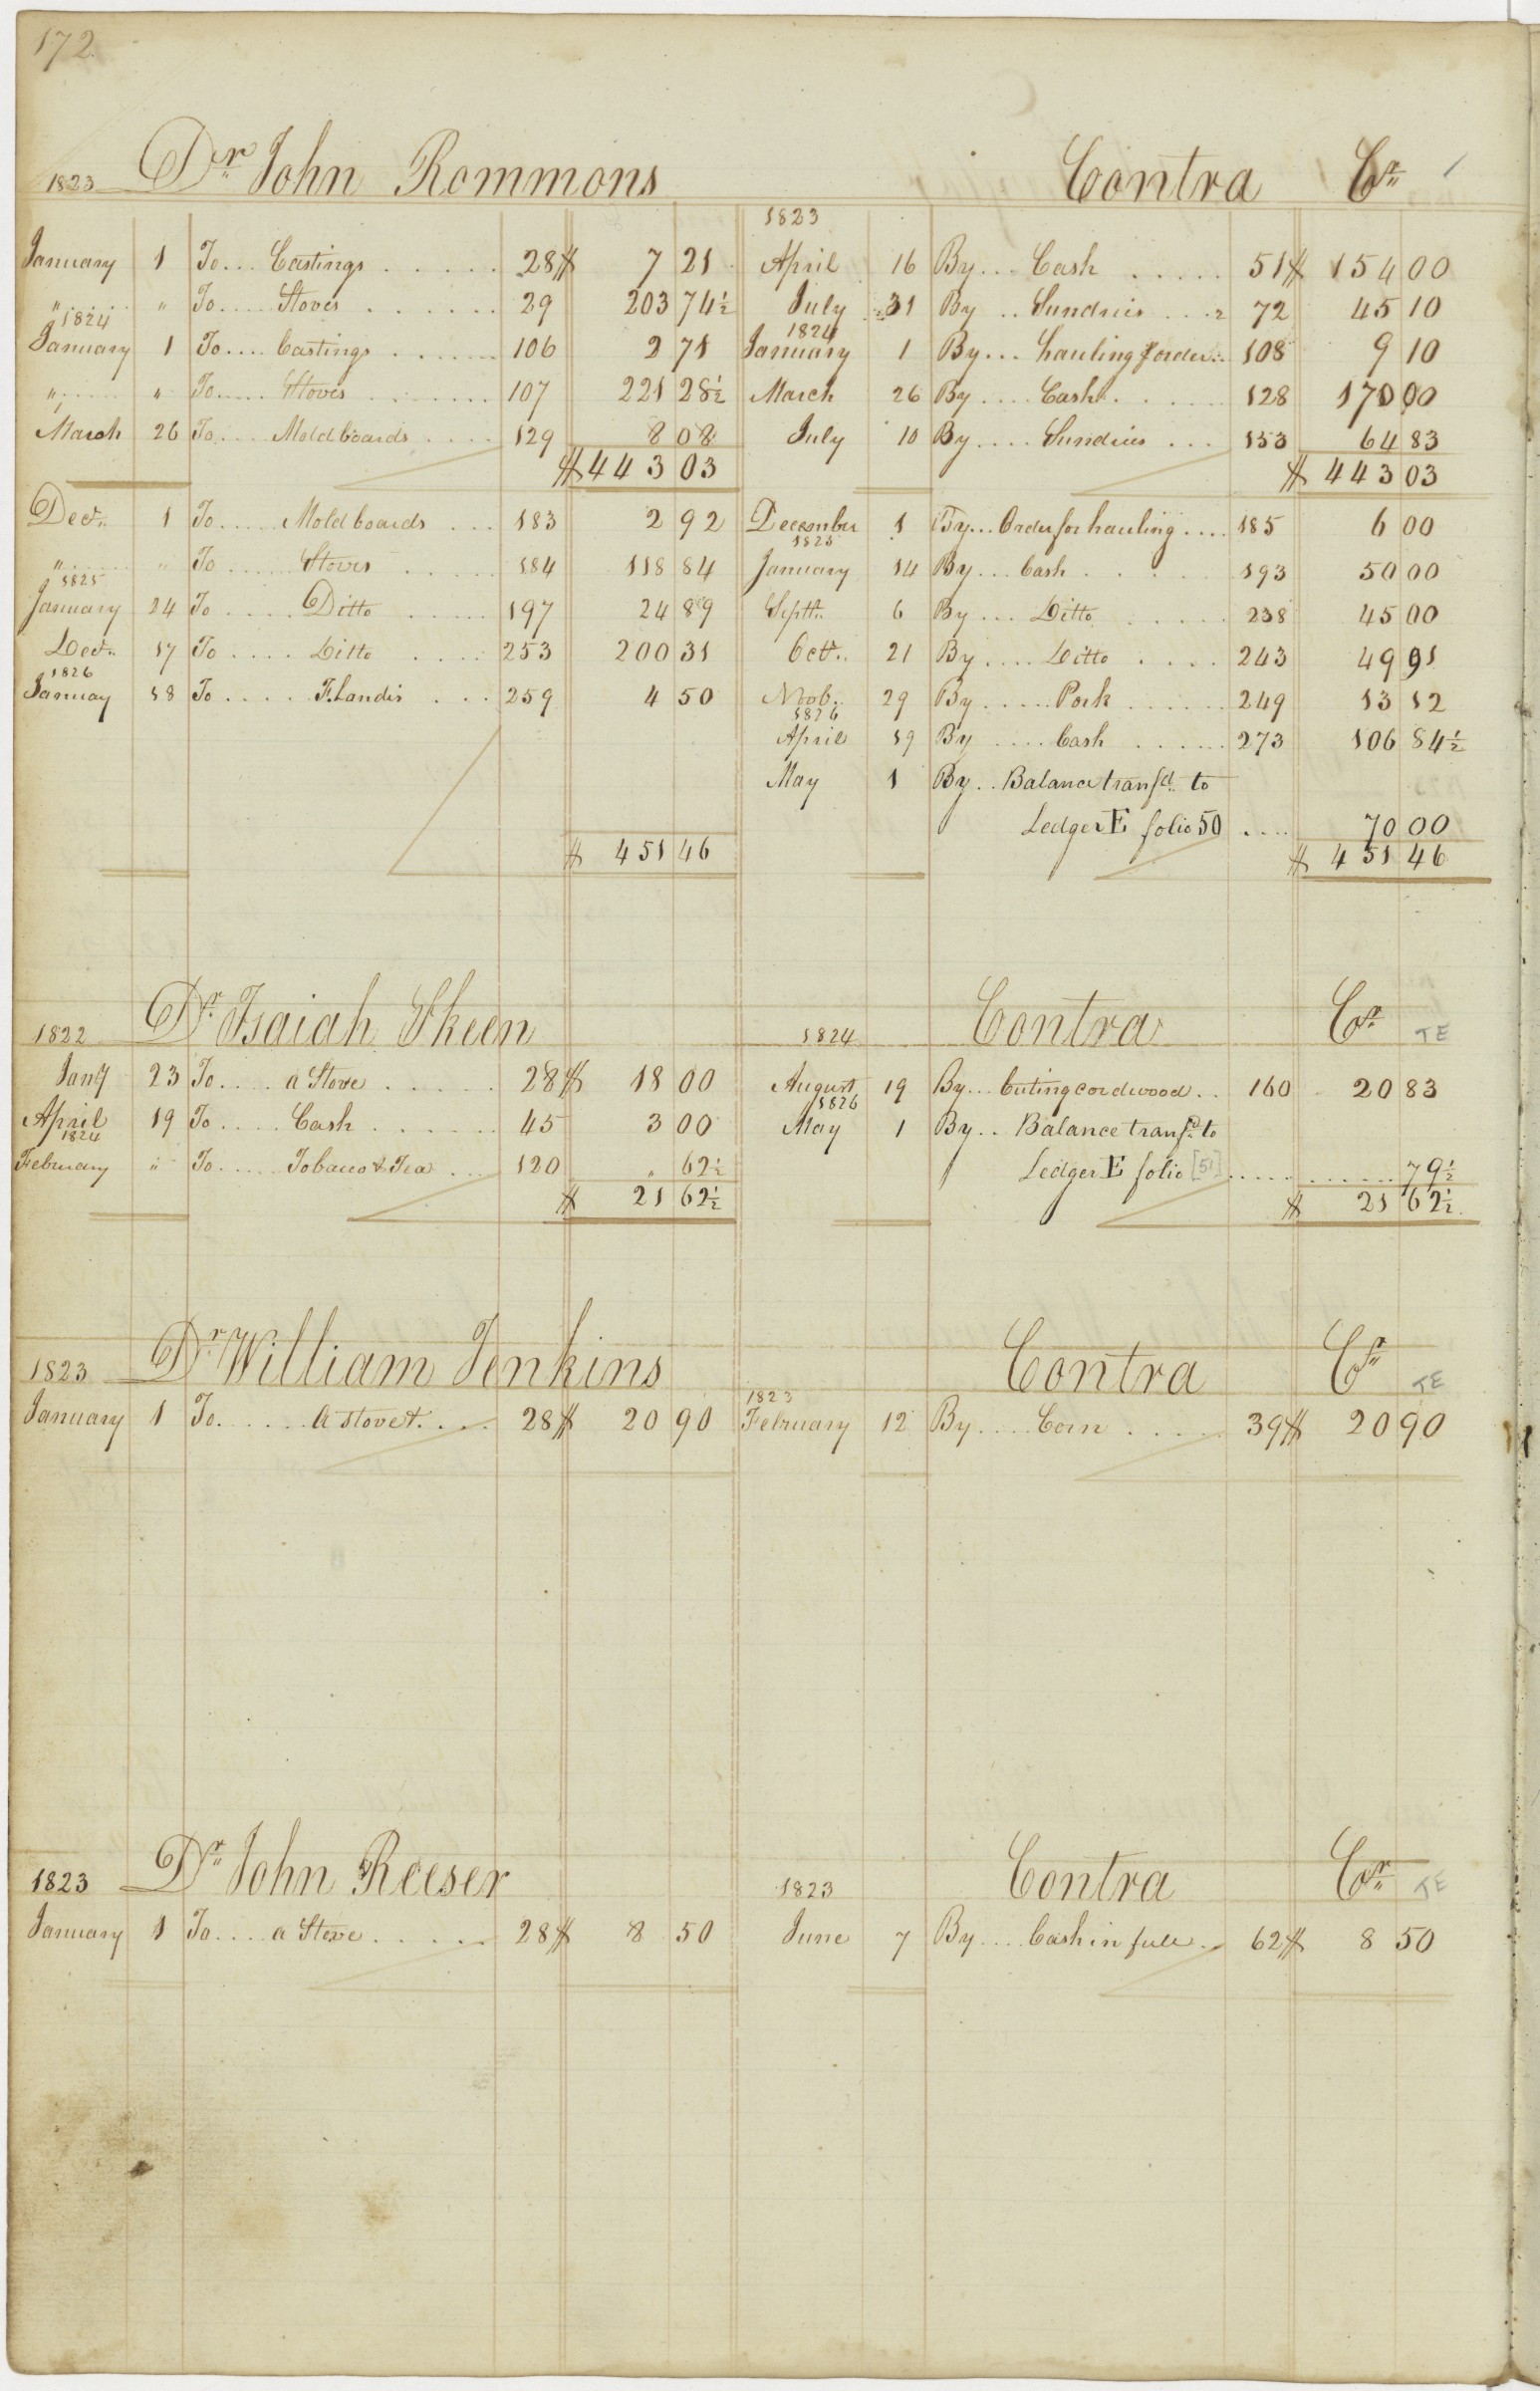 172
1823 Dr. John Rommons Contra Cr.
1823
January 1 To... Castings ...... 28 $ 7 21 April 16 By... Cash ..... 51 $ 154 00
" " To.... Stoves ...... 29 203 74½ July 31 By .. Sundries ... 72 45 10
1824 1824
January 1 To.... Castings ...... 106 2 71 January 1 By... hauling & order.. 108 9 10
" " To.... Stoves ....... 107 221 28½ March 26 By .... Cash ...... 128 170 00
March 26 To.... Moldboards .... 129 8 08 July 10 By .... Sundries ... 153 64 83
$ 443 03 $ 443 03
Decr. 1 To..... Moldboards ... 183 2 92 December 1 By... Order for hauling .... 185 6 00
1825
" " To ..... Stoves ..... 184 118 84 January 14 By... Cash ..... 193 50 00
1825
January 24 To ..... Ditto ..... 197 24 89 Septr. 6 By ... Ditto ..... 238 45 00
Decr. 17 To .... Ditto .... 253 200 31 Octr. 21 By .... Ditto .... 243 49 91
1826
Januay 18 To .... F. Landis ... 259 4 50 Novb. 29 By ..... Pork ...... 249 13 12
1826
April 19 By .... Cash ...... 273 106 84½
May 1 By .. Balance transfd. to
Ledger E folio 50 .... 70 00
$ 451 46 $ 451 46
1822 Dr. Isaiah Skeen 1824 Contra Cr. TE
Jany 23 To.... a Stove ...... 28 $ 18 00 August 19 By... Cuting cordwood .. 160 20 83
1826
April 19 To .... Cash ....... 45 3 00 May 1 By.. Balance transfd. to
1824
February " To ..... Tobacco & Tea ... 120 " 62½ Ledger E folio [51] ........... 79½
$ 21 62½ $ 21 62½
1823 Dr. William Jenkins Contra Cr. TE
1823
January 1 To...... A stove &. ... 28 $ 20 90 February 12 By .... Corn ..... 39 $ 20 90
1823 Dr. John Reeser 1823 Contra Cr. TE
January 1 To.... a Stove ..... 28 $ 8 50 June 7 By .... Cash in full .. 62 $ 8 50